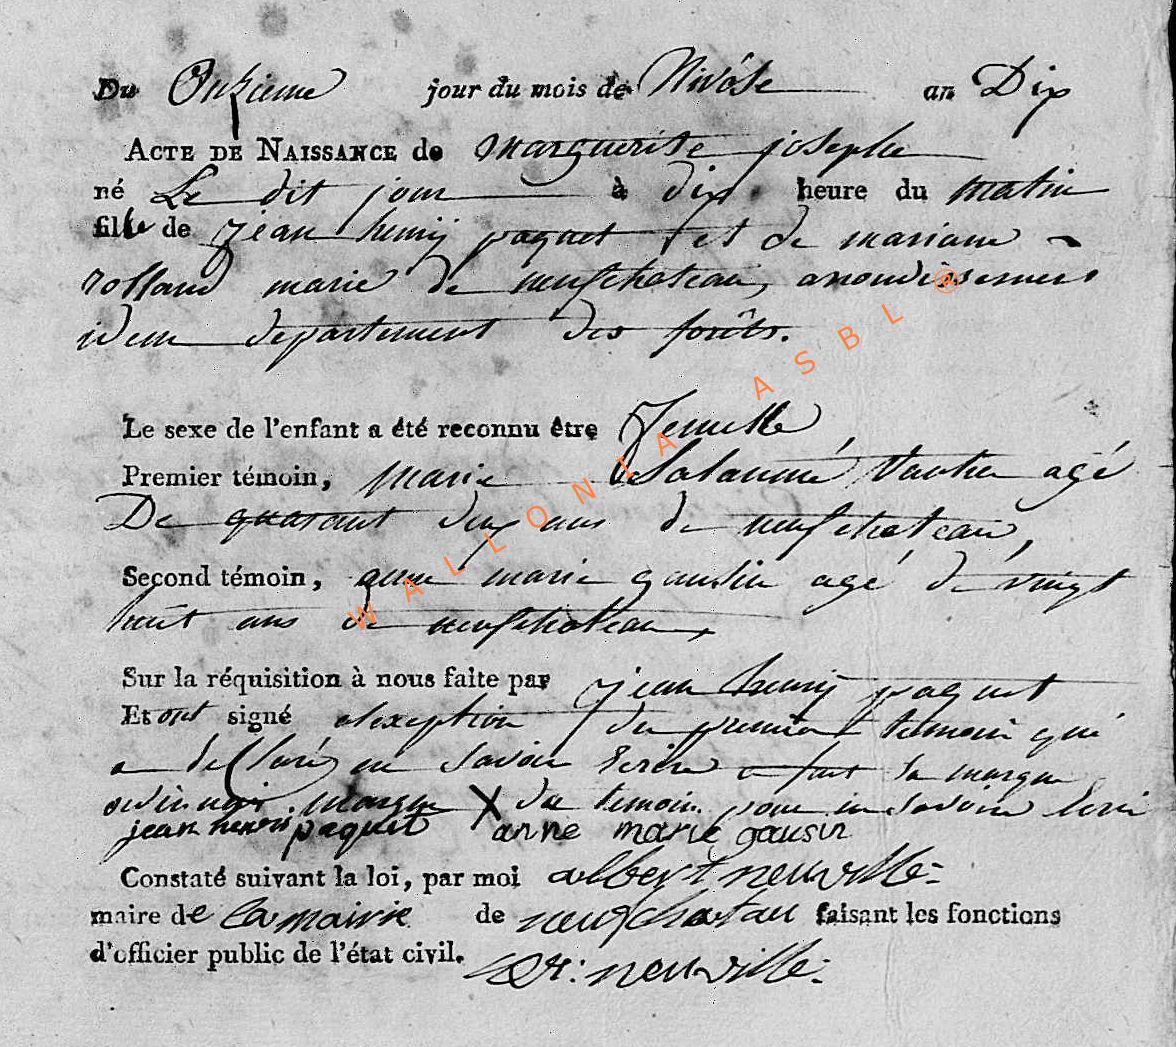 Du Onzieme jour du mois de Nivôse an Dix
ACTE DE NAISSANCE de marguerite josephe
né Le dit jour à dix heure du matin
fille de jean henrij paquet et de mariane
rolland marié de neufchateau, arrondissement
idem departement des forêts.
Le sexe de l'enfant a été reconnu être femelle
Premier témoin, marie Salaumé vautier agé
De quarant deux ans de neufchateau,
Second témoin, anne marie gausin agé de vingt
huit ans de neufchateau
Sur la réquisition à nous faite par jean henrij paquet
Et ont signé a lexeption du premier temoin qui
a declaré en savoir écrire a fait sa marque
ordinaire. marque X du temoin pour in savoir écrire
jean henri paquet anne marie gausin
Constaté suivant la loi, par moi albert neuville
maire de la mairie de neufchatau faisant les fonctions
d'officier public de l'état civil.
neuville
WALLONIA ASBL @